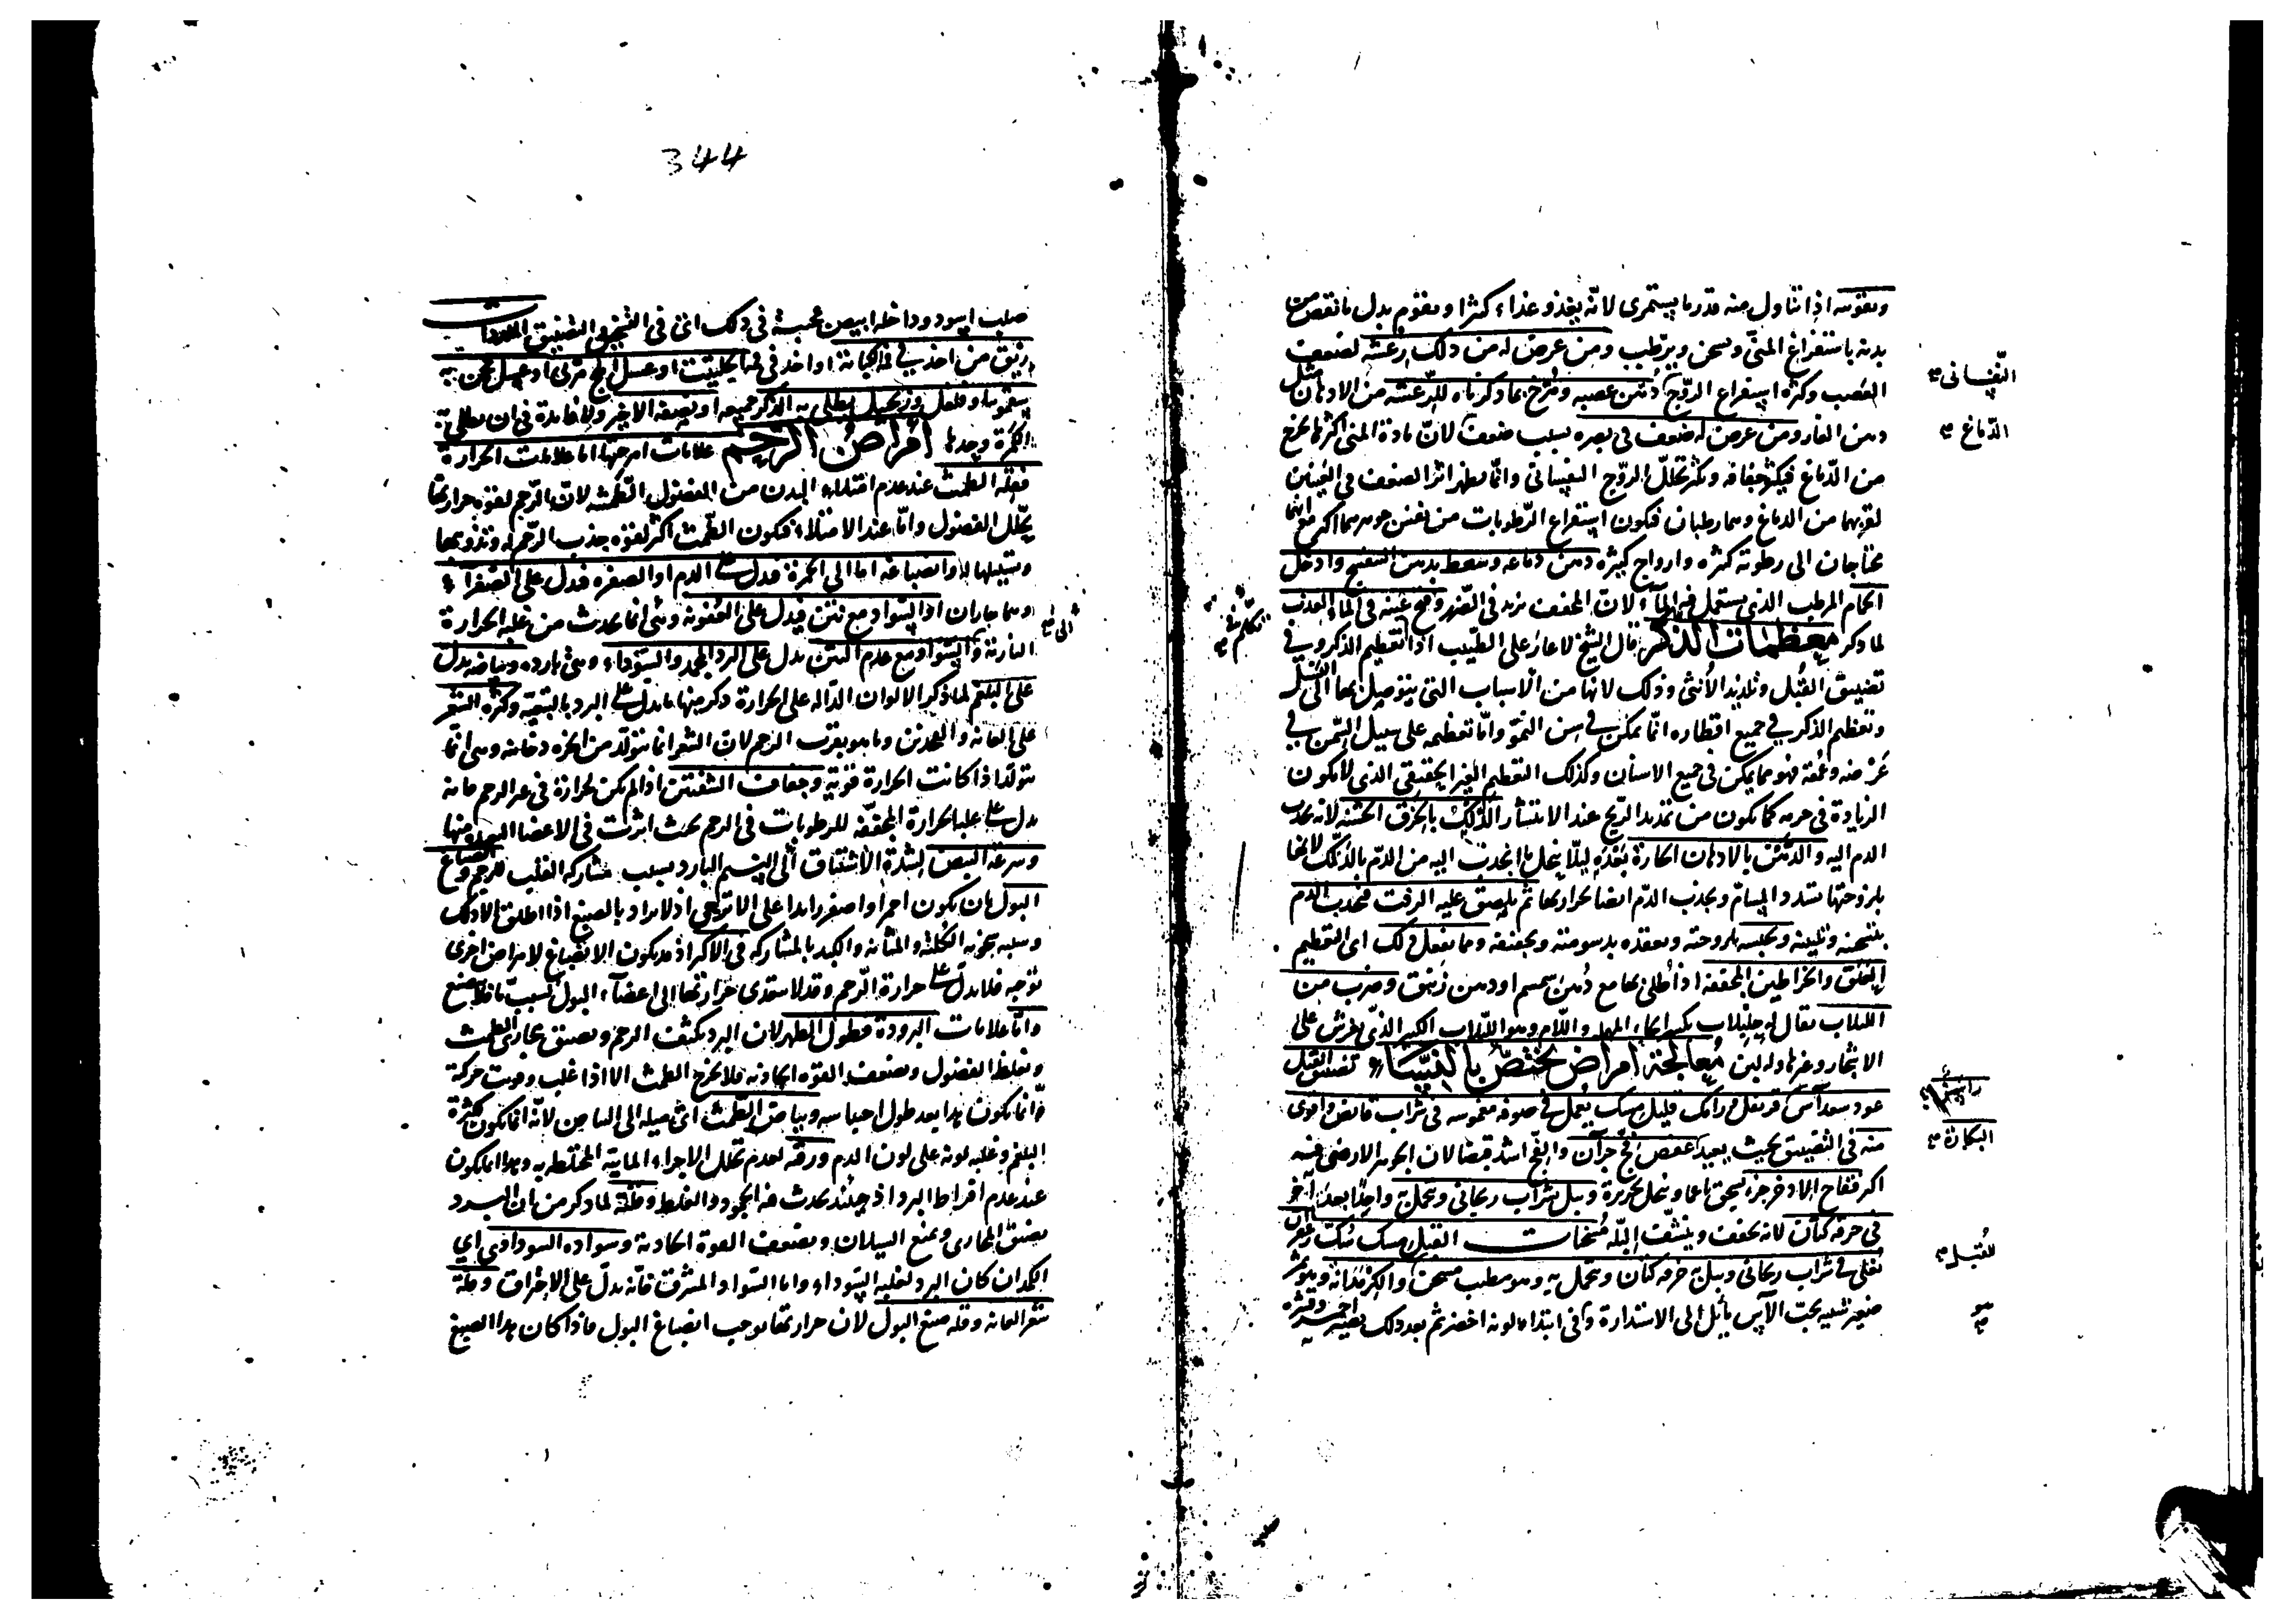 وتقويته اذا تناول منه قدر ما يستمرى لانه يغذو غذاء كثيرا ويقوم بدل ما نقص من
بدنه باستفراغ المنى ويسخن ويرطب ومن عرض له من ذلك رعشة لضعف
العصب وكثرة استفراغ الروح دهن عصبه ومرخ بما ذكرناه للرعشة من الادهان مثل
دهن الغار ومن عرض له ضعف في بصره بسبب ضعف لان مادة المنى اكثرها يخرج
من الدماغ فيكثر جفافه ويكثر تحلل الروح النفسانى وانما يظهر اثر الضعف في العينين
لقربهما من الدماغ وهما رطبان فيكون استفراغ الرطوبات من نفس جوهرهما اكثر مع انهما
محتاجان الى رطوبة كثيرة وارواح كثيرة دهن دماغه وسعط بدهن البنفسج وادخل
الحمام المرطب الذى يستعمل فيه الماء لان المجفف يزيد في الضرر وفتح عينه في الماء العذب
لما ذكر معظمات الذكر قال الشيخ لا عار على الطبيب اذا تكلم في تعظيم الذكر وفي
تضييق القبل وتلذيذ الانثى وذلك لانها من الاسباب التى يتوصل بها الى النسل
وتعظيم الذكر في جميع اقطاره انما يمكن في سن النمو واما تعظيمه على سبيل السمن في
عرضه وعمقه فهو مما يمكن في جميع الاسنان وكذلك التعظيم الغير الحقيقى الذى لا يكون
الزيادة في جرمه كما يكون من تمديد الريح عند الانتشار الدلك بالخرق الخشنة لانه يجذب
الدم اليه والدهن بالادهان الحارة بعده ليلا يتحلل ما انجذب اليه من الدم بالدلك لانها
بلزوجتها تسدد المسام ويجذب الدم ايضا بحرارتها ثم يلصق عليه الزفت فيجذب الدم
بتسخينه وتليينه ويحبسه بلزوجته ويعقده بدسومته وتجفيفه ومما يفعل ذلك اى التعظيم
العلق والخراطين المجففة اذا طلى بها مع دهن سمسم او دهن زنبق وضرب من
اللبلاب يقال له حلبلاب بكسر الحاء المهملة واللام وهو اللبلاب الكبير الذى يفرش على
الاشجار وغيرها وله لبن معالجة امراض يختص بالنساء تضييق القبل
عود سعد آس قرنفل رامك قليل مسك يحمل في صوفة مغموسة في شراب قابض واقوى
منه في التضييق بحيث يعيد عفص فج جزآن والفج اشد قبضا لان الجوهر الارضى فيه
اكثر فقاح الاذخر جزء يسحق ناعما وينخل بحريرة ويبل بشراب ريحانى ويتحمل به واحدا بعد آخر
في خرقة كتان لانه يجفف وينشف البلة مسخنات القبل مسك سك زعفران
تغلى في شراب ريحانى ويبل به خرقة كتان ويتحمل به وهو مطيب مسخن والكرمدانة وهو ثمر
صغير شبيه بحب الآس مائل الى الاستدارة وفى ابتدائه لونه اخضر ثم بعد ذلك يصير احمر وقشره
النفسانى
الدماغ
تكلم في
البكارة
للقبل
هو
344
صلب اسود وداخله ابيض عجيبة في ذلك اى في التسخين والتضييق الملذذات
ريق من اخذ في فمه كبابة او اخذ في فمه حلتيت او عسل املج مربى او عسل عجن به
سقمونيا وفلفل وزنجبيل يطلى به الذكر جميعه او نصفه الاخير ولا فائدة في ان يطلى به
الكمرة وحدها امراض الرحم علامات امزجتها اما علامات الحرارة
فقلة الطمث عند عدم امتلاء البدن من الفضول الطمثية لان الرحم لقوة حرارتها
يحلل الفضول واما عند الامتلاء فيكون الطمث اكثر لقوة جذب الرحم له وتذويبها
وتسييلها له وانصباغه اما الى الحمرة فيدل على الدم او الصفرة فيدل على الصفراء
وهما حاران او السواد مع نتن فيدل على العفونة وهى انما يحدث من غلبة الحرارة
النارية والسواد مع عدم النتن يدل على البرد المجمد والسوداء وهى باردة وبياضه يدل
على البلغم لما ذكر الالوان الدالة على الحرارة ذكر منها ما يدل على البرد بالتبعية وكثرة الشعر
على العانة والفخذين وما هو بقرب الرحم لان الشعر انما يتولد من ابخرة دخانية وهى انما
تتولد اذا كانت الحرارة قوية وجفاف الشفتين اذا لم يكن لحرارة في غير الرحم فانه
يدل على غلبة الحرارة المجففة للرطوبات في الرحم بحيث اثرت في الاعضا البعيدة منها
وسرعة النبض لشدة الاشتياق الى النسيم البارد بسبب مشاركة القلب للرحم وانصباغ
البول بان يكون احمر او اصفر زايدا على الاترجى اذ لا يراد بالصبغ اذا اطلق الا ذلك
وسببه سخونة الكلية والمثانة والكبد بالمشاركة في الاكثر اذ قد يكون الانصباغ لامراض اخرى
توجبه فلا يدل على حرارة الرحم وقد لا يتعدى حرارتها الى اعضاء البول لسبب ما فلا ينصبغ
واما علامات البرودة فطول الطهر لان البرد يكثف الرحم ويضيق مجارى الطمث
ويغلظ الفضول ويضعف القوة الجاذبة فلا يخرج الطمث الا اذا غلب وقويت حركته
وانما يكون هذا بعد طول احتباسه وبياض الطمث اى ميله الى البياض لانه انما يكون لكثرة
البلغم وغلبة لونه على لون الدم ورقته لعدم تحلل الاجزاء المائية المختلطة به وهذا انما يكون
عند عدم افراط البرد اذ حينئذ يحدث فيه الجمود والغلظ وقلته لما ذكر من ان البرد
يضيق المجارى ويمنع السيلان ويضعف القوة الجاذبة وسواده السوداوى اى
الكمد ان كان البرد لغلبة السوداء واما السواد المشرق فانه يدل على الاحتراق وقلة
شعر العانة وقلة صبغ البول لان حرارتها يوجب انصباغ البول فاذا كان هذا الصبغ